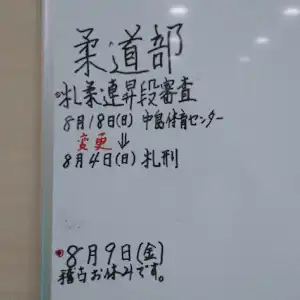 柔道部
・札柔連昇段審査
8月18日(日) 中島体育センター
変更 ⇓
8月4日(日) 札刑
・8月9日(金)
稽古お休みです。